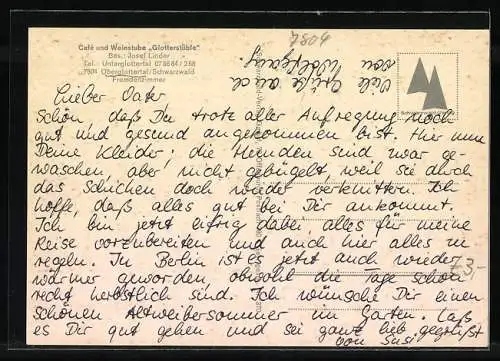 Café und Weinstube „Glotterstüble"
Bes.: Josef Linder
Tel.: Unterglottertal 07684/258
7804 Oberglottertal/Schwarzwald
Fremdenzimmer
7804
Viele Grüße auch
von Wolfgang.
Lieber Vater
Schön, daß Du trotz aller Aufregung noch
gut und gesund angekommen bist. Hier nun
Deine Kleider; die Hemden sind zwar ge-
waschen, aber nicht gebügelt, weil sie durch
das Schicken doch wieder verknittern. Ich
hoffe, daß alles gut bei Dir ankommt.
Ich bin jetzt eifrig dabei, alles für meine
Reise vorzubereiten und auch hier alles zu
regeln. In Berlin ist es jetzt auch wieder
wärmer geworden, obwohl die Tage schon
recht herbstlich sind. Ich wünsche Dir einen
schönen Altweibersommer im Garten. Laß
es Dir gut gehen und sei ganz lieb gegrüßt
von Susi
3-